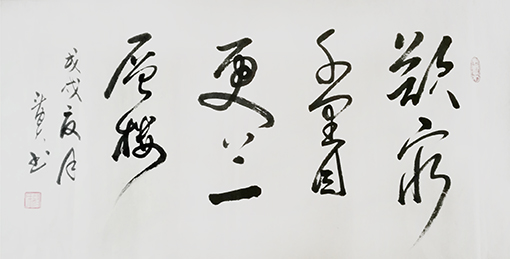 欲穷
千里目
更上一
层楼
戊戌夏月